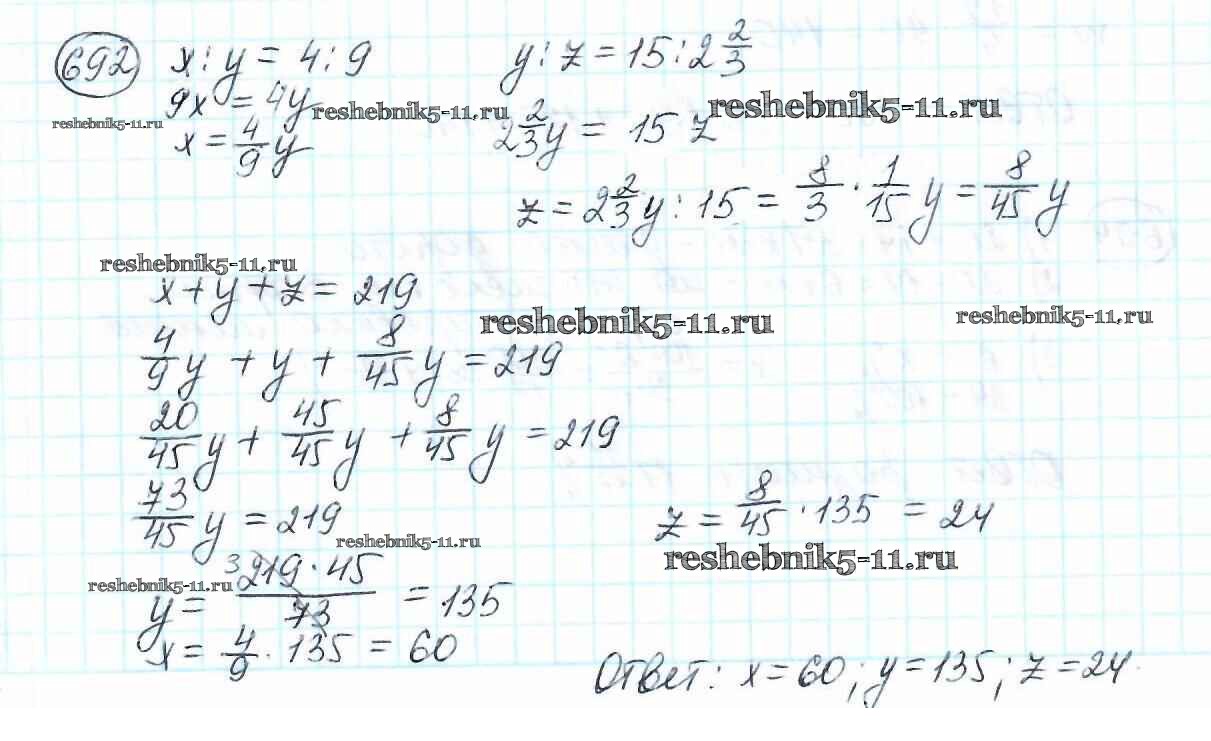 692 x : y = 4 : 9 y : z = 15 : 2 2/3
9x = 4y reshebnik5-11.ru reshebnik5-11.ru
reshebnik5-11.ru x = 4/9 y 2 2/3 y = 15 z
z = 2 2/3 y : 15 = 8/3 · 1/15 y = 8/45 y
reshebnik5-11.ru
x + y + z = 219
reshebnik5-11.ru reshebnik5-11.ru
4/9 y + y + 8/45 y = 219
20/45 y + 45/45 y + 8/45 y = 219
73/45 y = 219 z = 8/45 · 135 = 24
reshebnik5-11.ru reshebnik5-11.ru
reshebnik5-11.ru y = 3 219 · 45 / 73 = 135
x = 4/9 · 135 = 60
Ответ: x = 60; y = 135; z = 24.